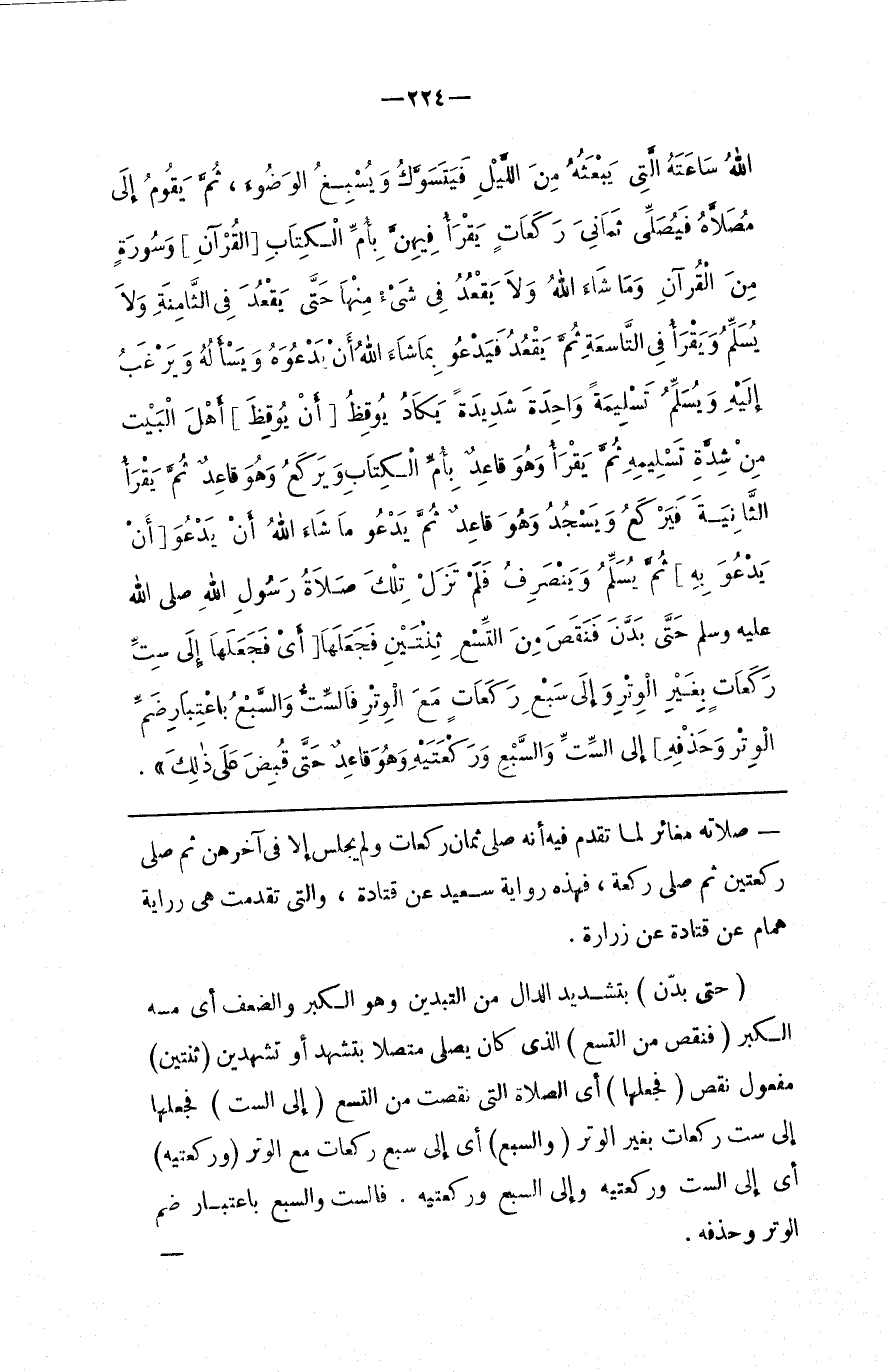 —٢٢٤—
اللهُ سَاعَتَهُ الَّتِى يَبْعَثُهُ مِنَ اللَّيْلِ فَيَتَسَوَّكُ وَيُسْبِغُ الوَضُوءَ ، ثُمَّ يَقُومُ إِلَى
مُصَلاَّهُ فَيُصَلِّى ثَمَانِىَ رَكَعَاتٍ يَقْرَأُ فِيهِنَّ بِأُمِّ الْكِتَابِ [القُرْآنِ] وَسُورَةٍ
مِنَ الْقُرآنِ وَمَا شَاءَ اللهُ وَلاَ يَقْعُدُ فِى شَىْءٍ مِنْهَا حَتَّى يَقْعُدَ فِى الثَّامِنَةِ وَلاَ
يُسَلِّمُ وَيَقْرَأُ فِى التَّاسِعَةِ ثُمَّ يَقْعُدُ فَيَدْعُو بِمَاشَاءَ اللهُ أَنْ يَدْعُوَهُ وَيَسْأَلُهُ وَيَرْغَبُ
إِلَيْهِ وَيُسَلِّمُ تَسْلِيمَةً وَاحِدَةً شَدِيدَةً يَكَادُ يُوقِظُ [ أَنْ يُوقِظَ ] أَهْلَ الْبَيْت
مِنْ شِدَّةِ تَسْلِيمِهِ ثُمَّ يَقْرَأُ وَهُوَ قَاعِدٌ بِأُمِّ الْكِتَابِ وَيَرْكَعُ وَهُوَ قَاعِدٌ ثُمَّ يَقْرَأُ
الثَّانِيَةَ فَيَرْكَعُ وَيَسْجُدُ وَهُوَ قَاعِدٌ ثُمَّ يَدْعُو مَا شَاءَ اللهُ أَنْ يَدْعُوَ [أَنْ
يَدْعُوَ بِهِ ] ثُمَّ يُسَلِّمُ وَيَنْصَرِفُ فَلَمْ تَزَلْ تِلْكَ صَلاَةُ رَسُولِ اللهِ صلى الله
عليه وسلم حَتَّى بَدَّنَ فَنَقَصَ مِنَ التِّسْعِ ثِنْتَيْنِ فَجَعَلَهَا [ أَىْ فَجَعَلَهَا إِلَى سِتِّ
رَكَعَاتٍ بِغَيْرِ الْوِتْرِ وَإِلَى سَبْعِ رَكَعَاتٍ مَعَ الْوِتْرِ فَالسِّتُّ وَالسَّبْعُ بِاعْتِبَارِ ضَمِّ
الْوِتْرِ وَحَذْفِهِ ] إلى السِّتِّ وَالسَّبْعِ وَرَكْعَتَيْهِ وَهُوَ قَاعِدٌ حَتَّى قُبِضَ عَلَى ذٰلِكَ » .
— صلاته مغائر لما تقدم فيه أنه صلى ثمان ركعات ولم يجلس إلا فى آخرهن ثم صلى
ركعتين ثم صلى ركعة ، فهذه رواية سعيد عن قتادة ، والتى تقدمت هى رراية
همام عن قتادة عن زرارة .
( حتى بدّن ) بتشديد الدال من التبدين وهو الكبر والضعف أى مسه
الكبر ( فنقص من التسع ) الذى كان يصلى متصلا بتشهد أو تشهدين (ثنتين)
مفعول نقص ( فجعلها ) أى الصلاة التى نقصت من التسع ( إلى الست ) فجعلها
إلى ست ركعات بغير الوتر ( والسبع) أى إلى سبع ركعات مع الوتر (وركعتيه)
أى إلى الست وركعتيه وإلى السبع وركعتيه . فالست والسبع باعتبار ضم
الوتر وحذفه .
—